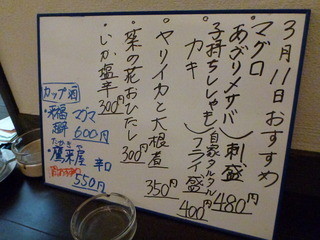 3月11日おすすめ
マグロ
あぶりメサバ
刺盛 480円
子持ちししゃも
カキ
フライ盛 400円
ヤリイカと大根煮 350円
菜の花おひたし 300円
いか塩辛 300円
カップ酒
マグマ 600円
たかきや
鷹来屋 辛口
550円